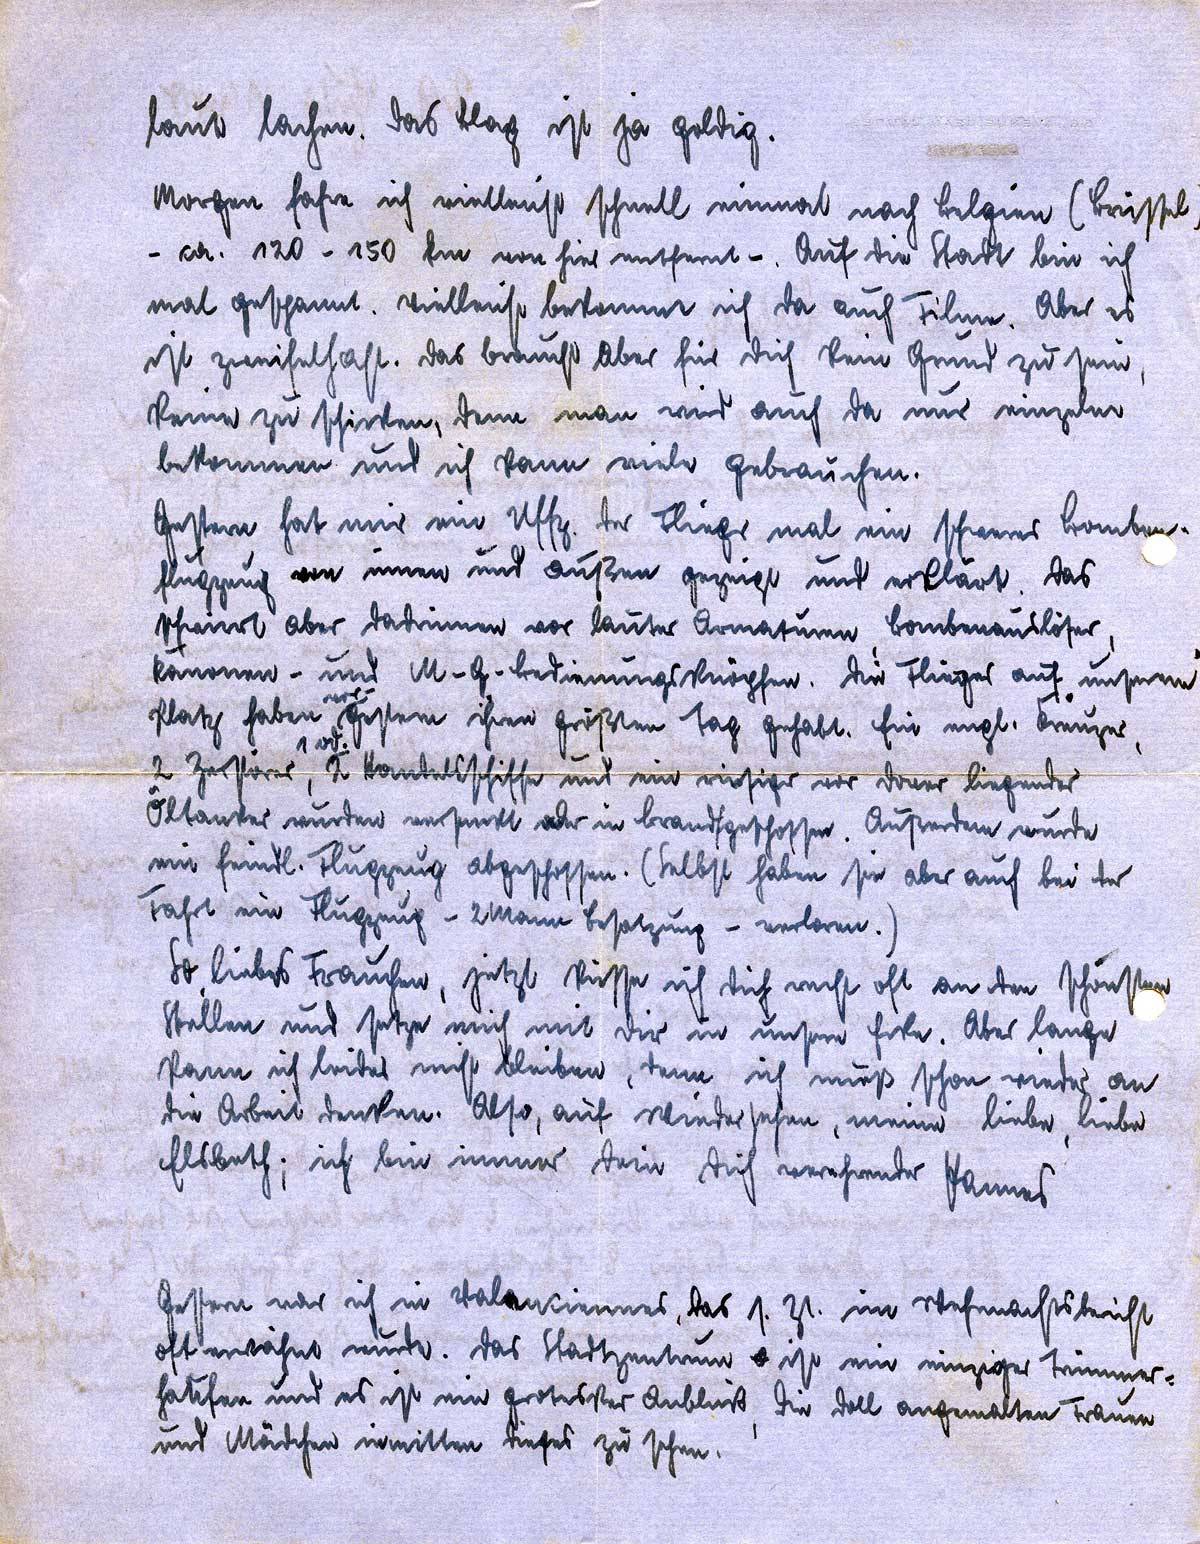 laut lachen. Das Blag ist ja goldig.
Morgen fahre ich vielleicht schnell einmal nach Belgien (Brüssel,
- ca. 120 - 150 km von hier entfernt -. Auf die Stadt bin ich
mal gespannt. Vielleicht bekomme ich da auch Filme. Aber es
ist zweifelhaft. Das braucht aber für Dich kein Grund zu sein,
keine zu schicken, denn man wird auch da nur einzelne
bekommen und ich kann viele gebrauchen.
Gestern hat mir ein Uffz. der Flieger mal ein schweres Bomben-
flugzeug von innen und außen gezeigt und erklärt. Das
schwirrt aber dadrinnen vor lauter Armaturen, Bombenauslöser,
Kanonen- und M-G-Bedienungsknöpfen. Die Flieger auf unserem
Platz haben vor-gestern ihren größten Tag gehabt. Ein engl. Kreuzer,
2 Zerstörer, 1 od. 2 Handelsschiffe und ein riesiger vor Dover liegender
Öltanker wurden versenkt oder in Brand geschossen. Außerdem wurde
ein feindl. Flugzeug abgeschossen. (Selbst haben sie aber auch bei der
Fahrt ein Flugzeug - 2 Mann Besatzung - verloren.)
So, liebes Frauchen, jetzt küsse ich Dich recht oft an den schönsten
Stellen und setze mich mit Dir in unsere Ecke. Aber lange
kann ich leider nicht bleiben, denn ich muß schon wieder an
die Arbeit denken. Also, auf Wiedersehen, meine liebe, liebe
Elsbeth; ich bin immer Dein Dich verehrender Hannes
Gestern war ich in Valenciennes, das s. Zt. im Wehrmachtsbericht
oft erwähnt wurde. Das Stadtzentrum ist ein einziger Trümmer-
haufen und es ist ein grotesker Anblick, die doll angemalten Frauen
und Mädchen inmitten dieses zu sehen.